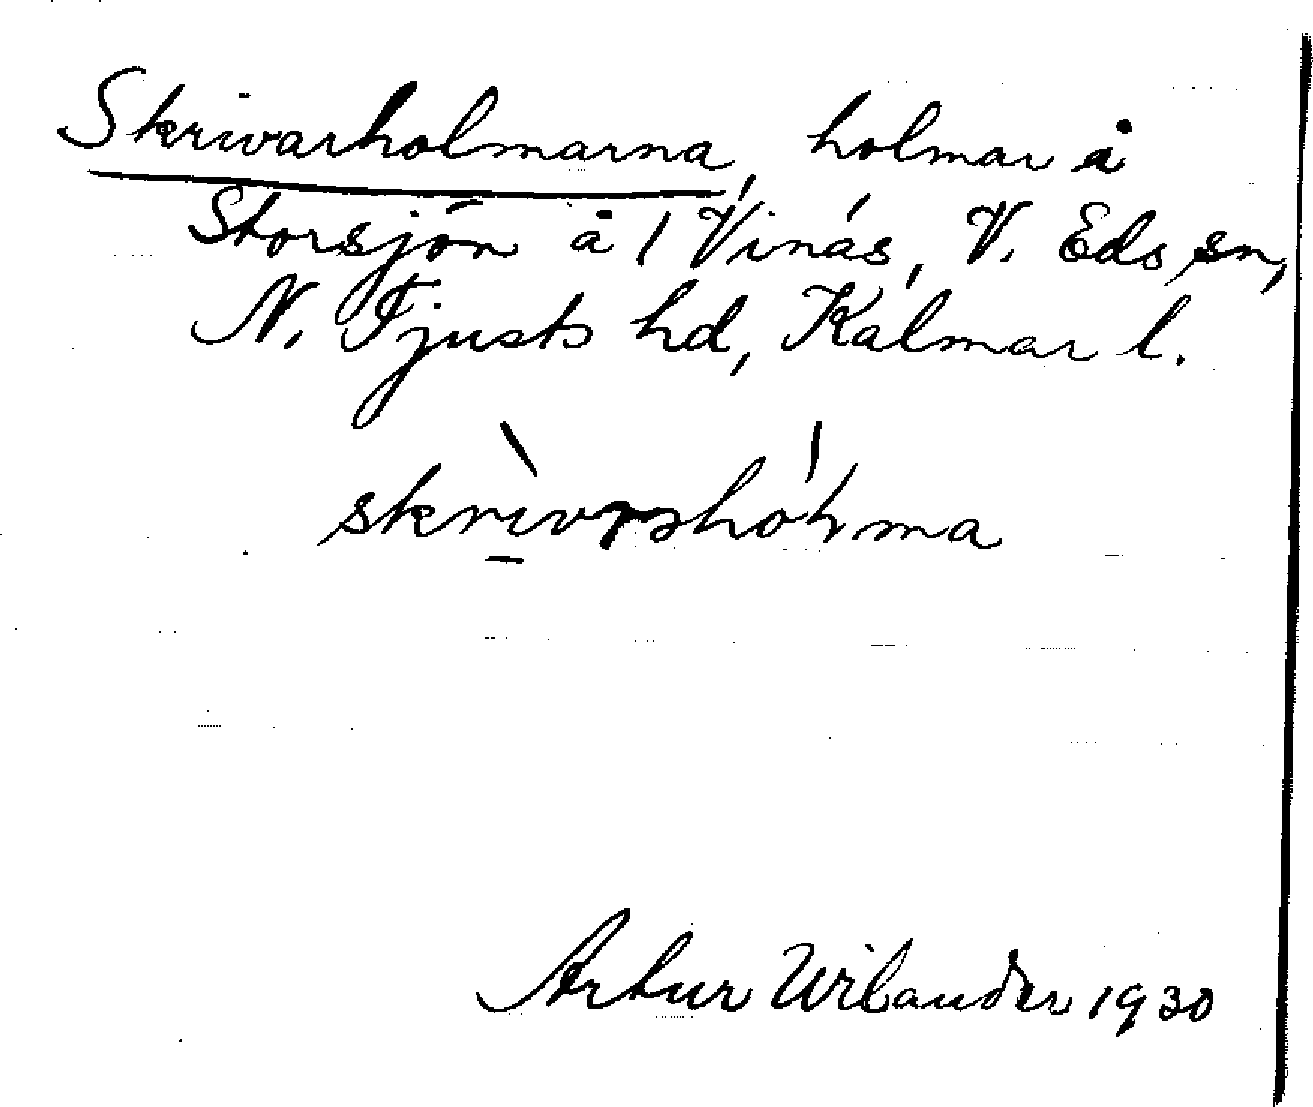 Skrivarholmarna, holmar å
Storsjön å 1 Vinäs, V. Eds sn,
N. Tjusts hd, Kalmar l.
Artur Wilander 1930